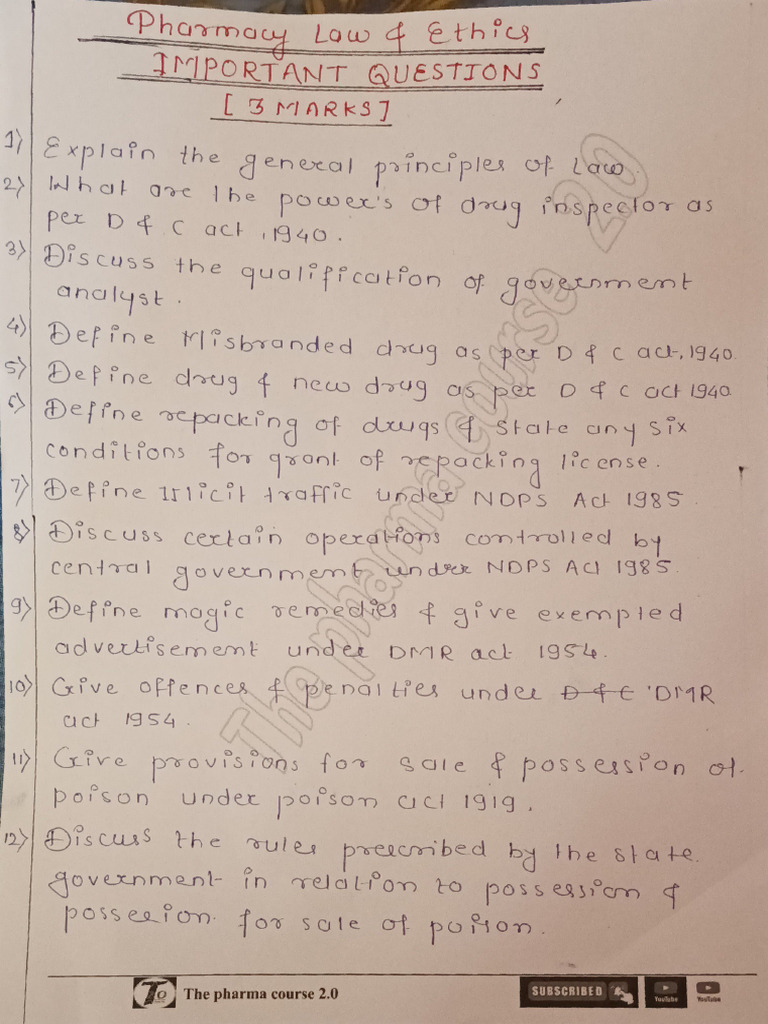 Pharmacy Law & Ethics
IMPORTANT QUESTIONS
[3 MARKS]
1) Explain the general principles of Law.
2) What are the power's of drug inspector as
per D & C act, 1940.
3) Discuss the qualification of government
analyst.
4) Define Misbranded drug as per D & C act, 1940.
5) Define drug & new drug as per D & C act 1940
6) Define repacking of drugs & State any six
conditions for grant of repacking license.
7) Define Illicit traffic under NDPS Act 1985.
8) Discuss certain operations controlled by
central government under NDPS Act 1985.
9) Define magic remedies & give exempted
advertisement under DMR act 1954.
10) Give offences & penalties under D & C DMR
act 1954.
11) Give provisions for sale & possession of
poison under poison act 1919.
12) Discuss the rules prescribed by the state
government in relation to possession &
possesion for sale of poison.
The pharma course 2.0
To The pharma course 2.0
SUBSCRIBED YouTube YouTube